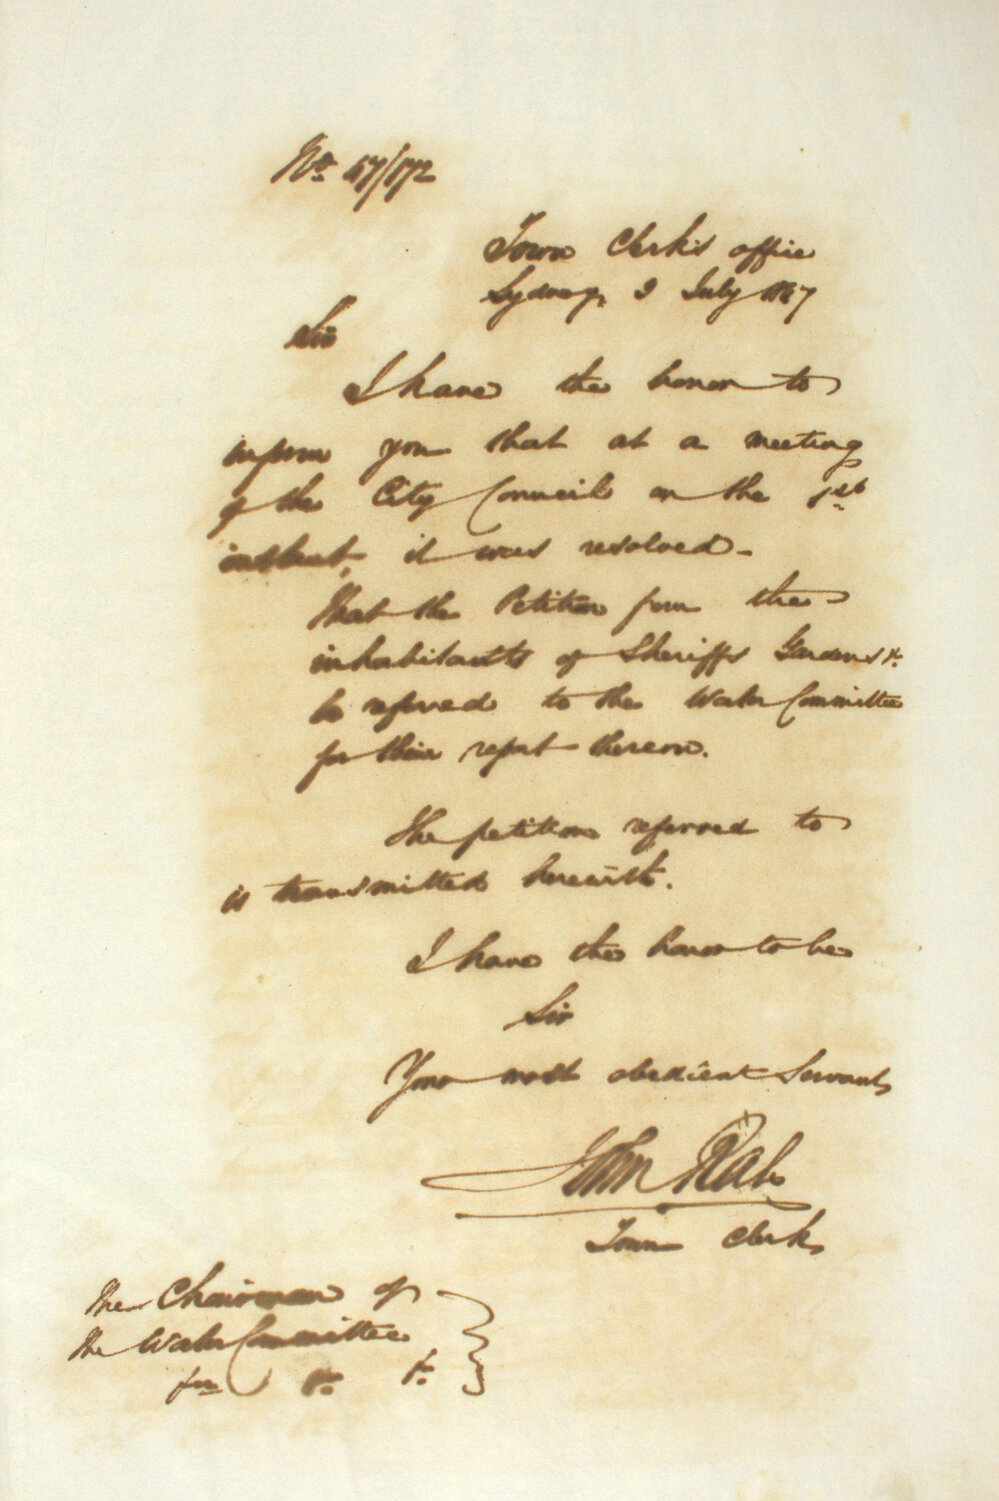 No. 47/172
Town Clerk's office
Sydney, 2 July 1847
Sir
I have the honor to
inform you that at a meeting
of the City Council on the 1st
instant, it was resolved -
That the Petition from the
inhabitants of Sheriffs Gardens &c.
be referred to the Water Committee
for their report thereon.
The petition referred to
is transmitted herewith.
I have the honor to be
Sir
Your most obedient Servant,
John Rae
Town Clerk
The Chairman of
the Water Committee
&c. &c. &c.